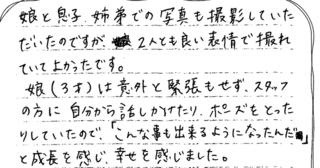 娘と息子、姉弟での写真も撮影していた
だいたのですが、2人とも良い表情で撮れ
ていてよかったです。
娘(3才)は意外と緊張もせず、スタッフ
の方に自分から話しかけたり、ポーズをとった
りしていたので、「こんな事も出来るようになったんだ」
と成長を感じ、幸せを感じました。